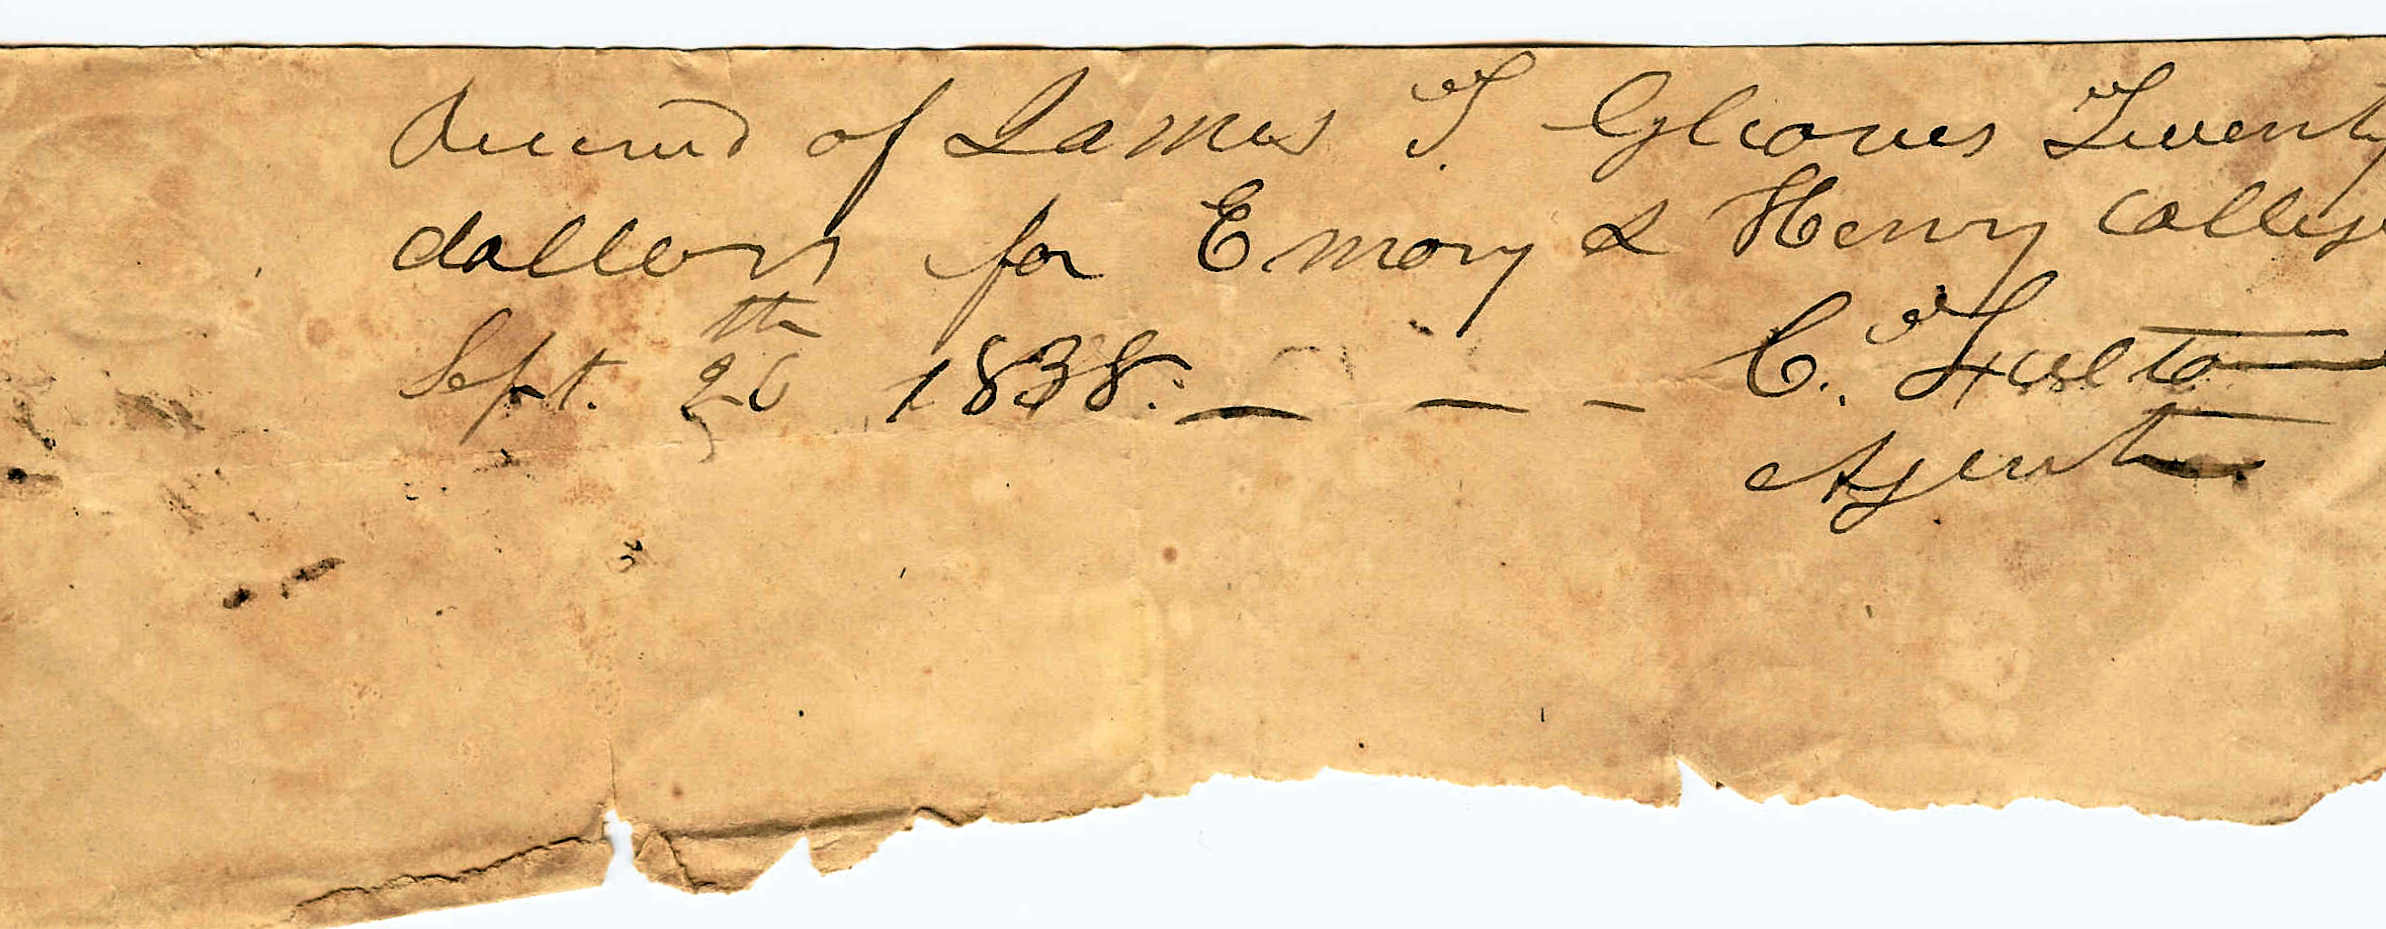 Received of James T Gleaves Twenty
dollars for Emory & Henry College
Sept. 26th 1838. — — – C. Fulton
Agent.